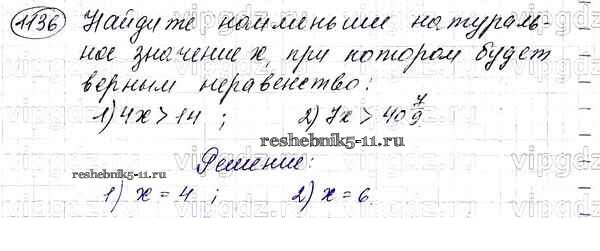 1136 Найдите наименьши натураль-
ное значение x, при котором будет
верным неравенство:
1) 4x > 14 ; 2) 7x > 40 7/9
reshebnik5-11.ru
Решение:
reshebnik5-11.ru
1) x = 4 ; 2) x = 6.